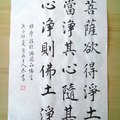 菩薩欲得淨土
當淨其心隨其
心淨則佛土淨
維摩詰經佛國品